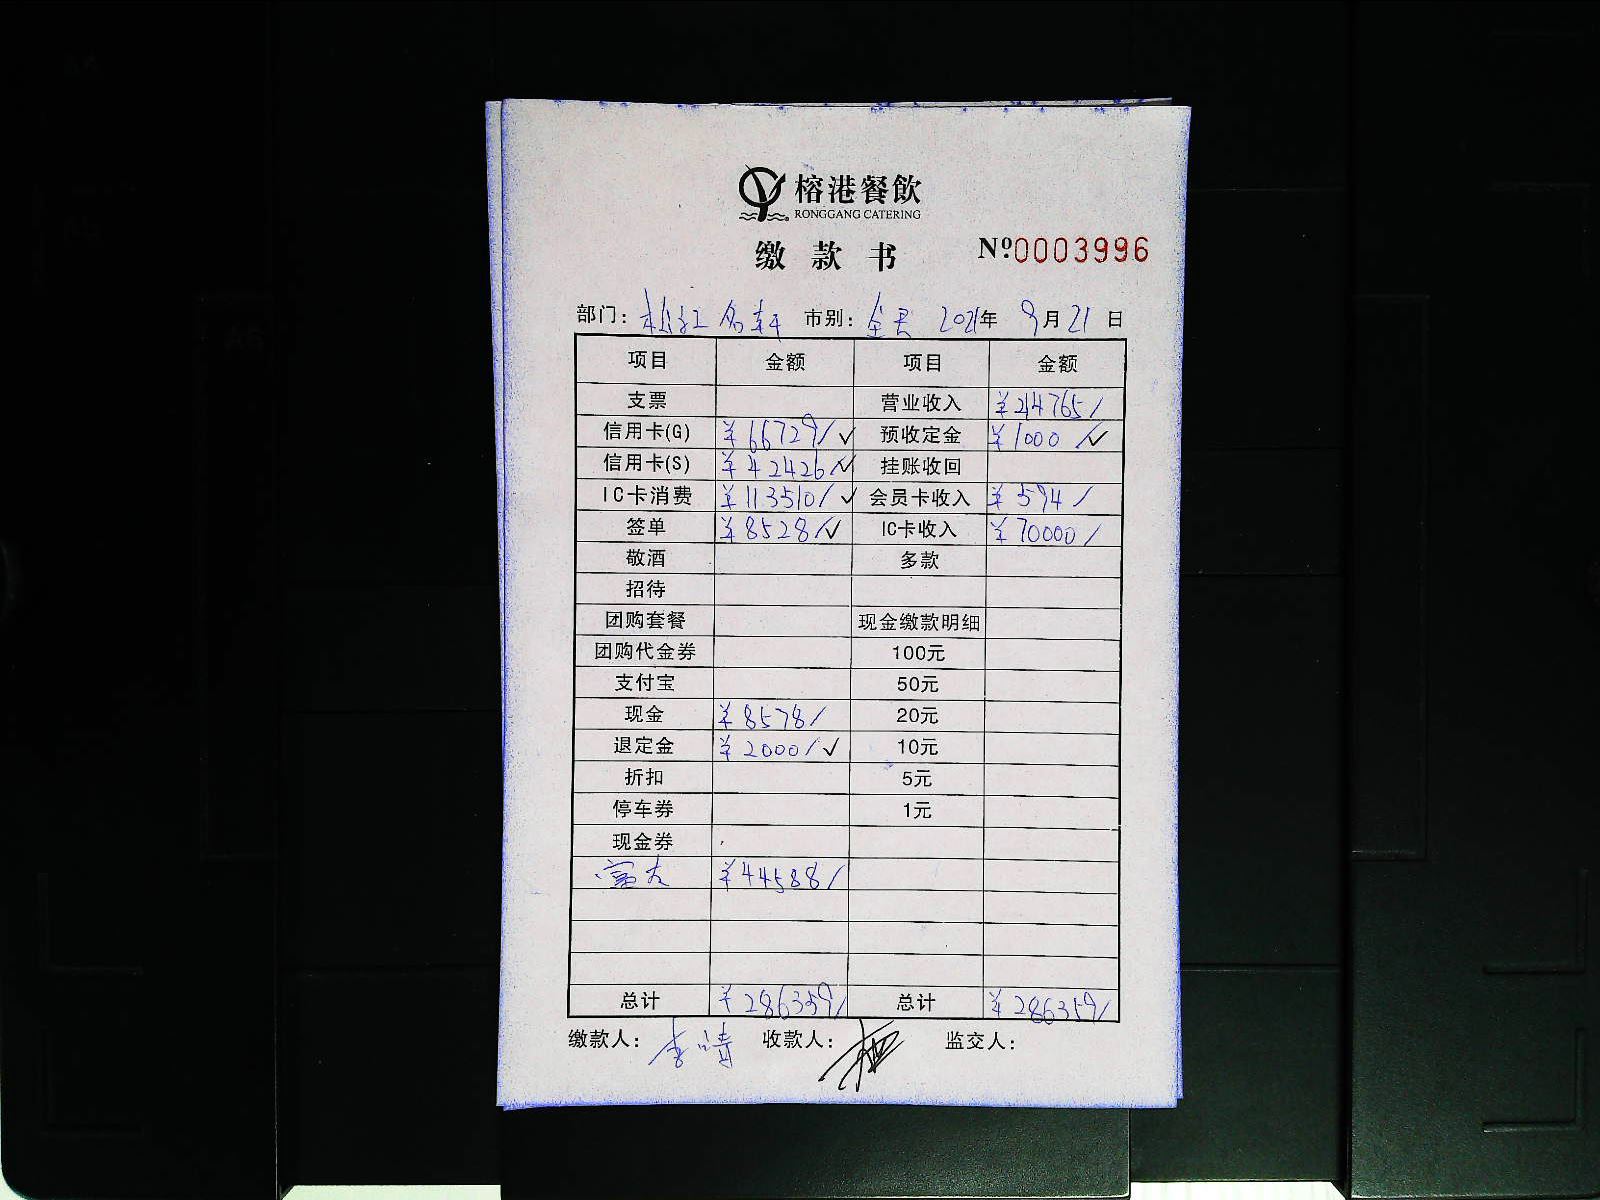 榕港餐飲
RONGGANG CATERING
缴款书 Nº0003996
部门: 松江名轩 市别: 2021年 9月21日
项目 金额 项目 金额
支票 营业收入 ¥214765/
信用卡(G) ¥66729/✓ 预收定金 ¥1000/✓
信用卡(S) ¥42426/✓ 挂账收回
IC卡消费 ¥113510/✓ 会员卡收入 ¥594/
签单 ¥8528/✓ IC卡收入 ¥70000/
敬酒 多款
招待
团购套餐 现金缴款明细
团购代金券 100元
支付宝 50元
现金 ¥8578/ 20元
退定金 ¥2000/✓ 10元
折扣 5元
停车券 1元
现金券
富友 ¥44588/
总计 ¥286359/ 总计 ¥286359/
缴款人: 李 收款人: 监交人: